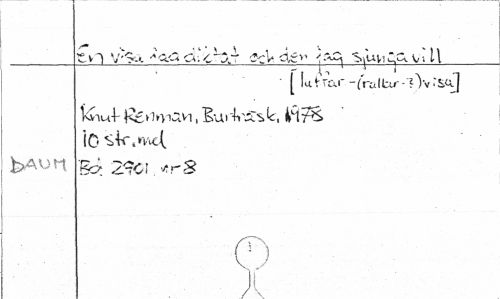 En visa jag diktat och den jag sjunga vill
[luffar-(rallar-?)visa]
Knut Renman, Burträsk, 1978
10 str, mel
DAUM Bd. 2901 nr 8